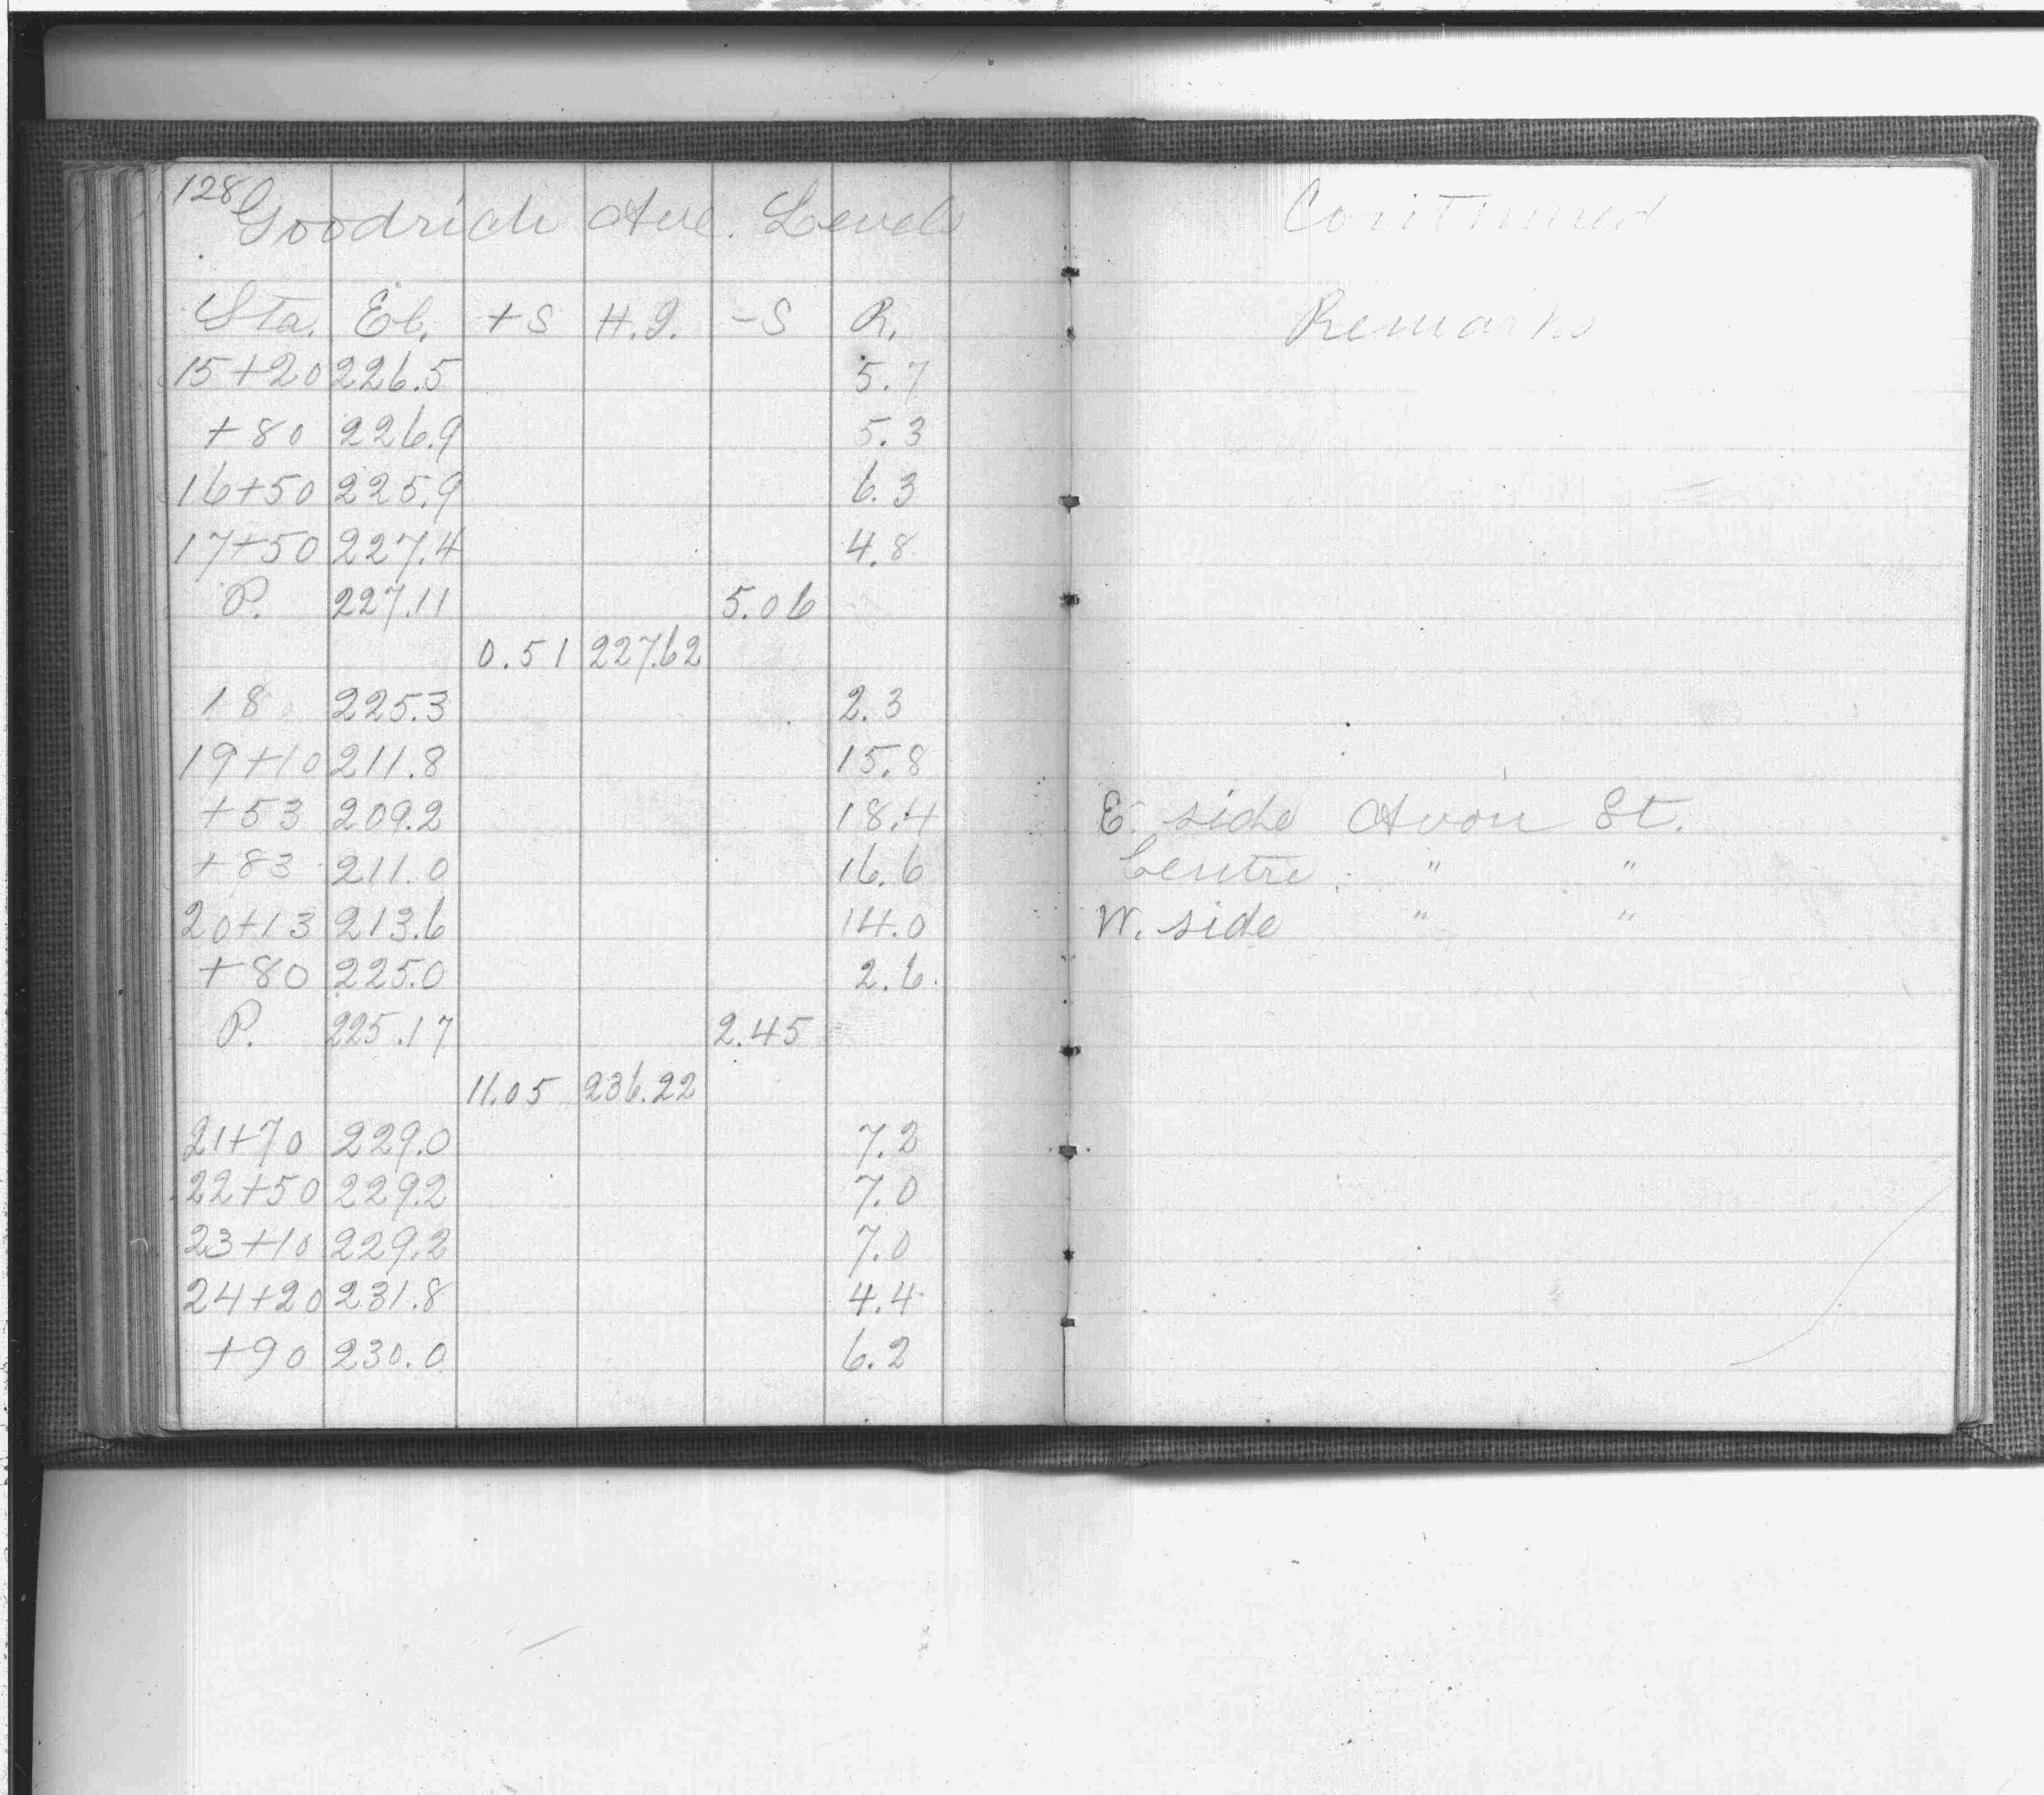 128
Goodrich Ave. Levels Continued
Sta. El. +S H.I. -S R. Remarks
15+20 226.5 5.7
+80 226.9 5.3
16+50 225.9 6.3
17+50 227.4 4.8
P. 227.11 5.06
0.51 227.62
18 225.3 2.3
19+10 211.8 15.8
+53 209.2 18.4 E. side Avon St.
+83 211.0 16.6 Centre " "
20+13 213.6 14.0 W. side " "
+80 225.0 2.6
P. 225.17 2.45
11.05 236.22
21+70 229.0 7.2
22+50 229.2 7.0
23+10 229.2 7.0
24+20 231.8 4.4
+90 230.0 6.2